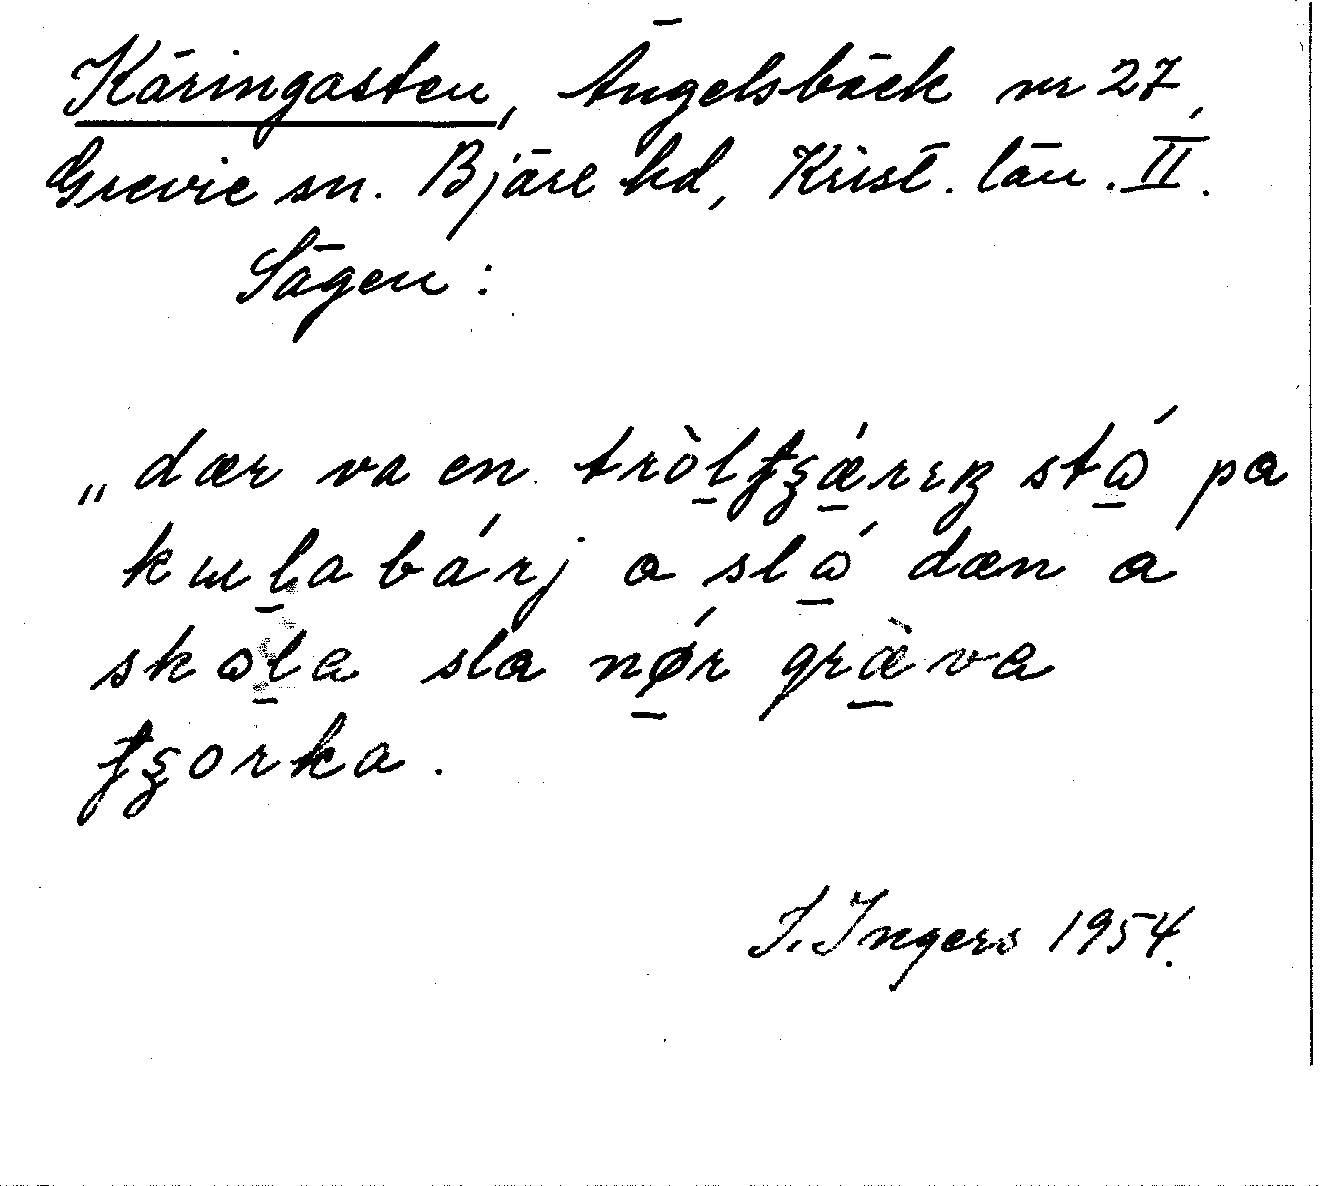 Käringasten, Ängelsbäck nr 27,
Grevie sn. Bjäre hd, Krist. län. II.
Sägen:
„dær va en tròl̲ʄʒǽ̲rɪŋ stɷ̲́ pa
kɯl̲a bárj a slɷ̲́ dæn a
skɷl̲a sla nǿ̲r græ̲̀va
ʄʒorka.
I. Ingers 1954.